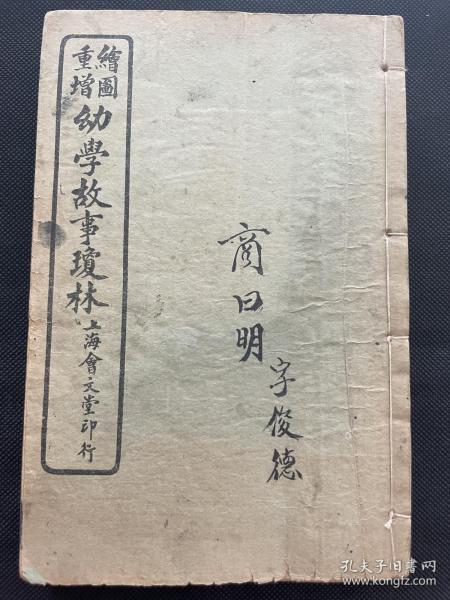 繪圖
重增
幼學故事瓊林
上海會文堂印行
商曰明
字俊德
孔夫子旧书网
www.kongfz.com